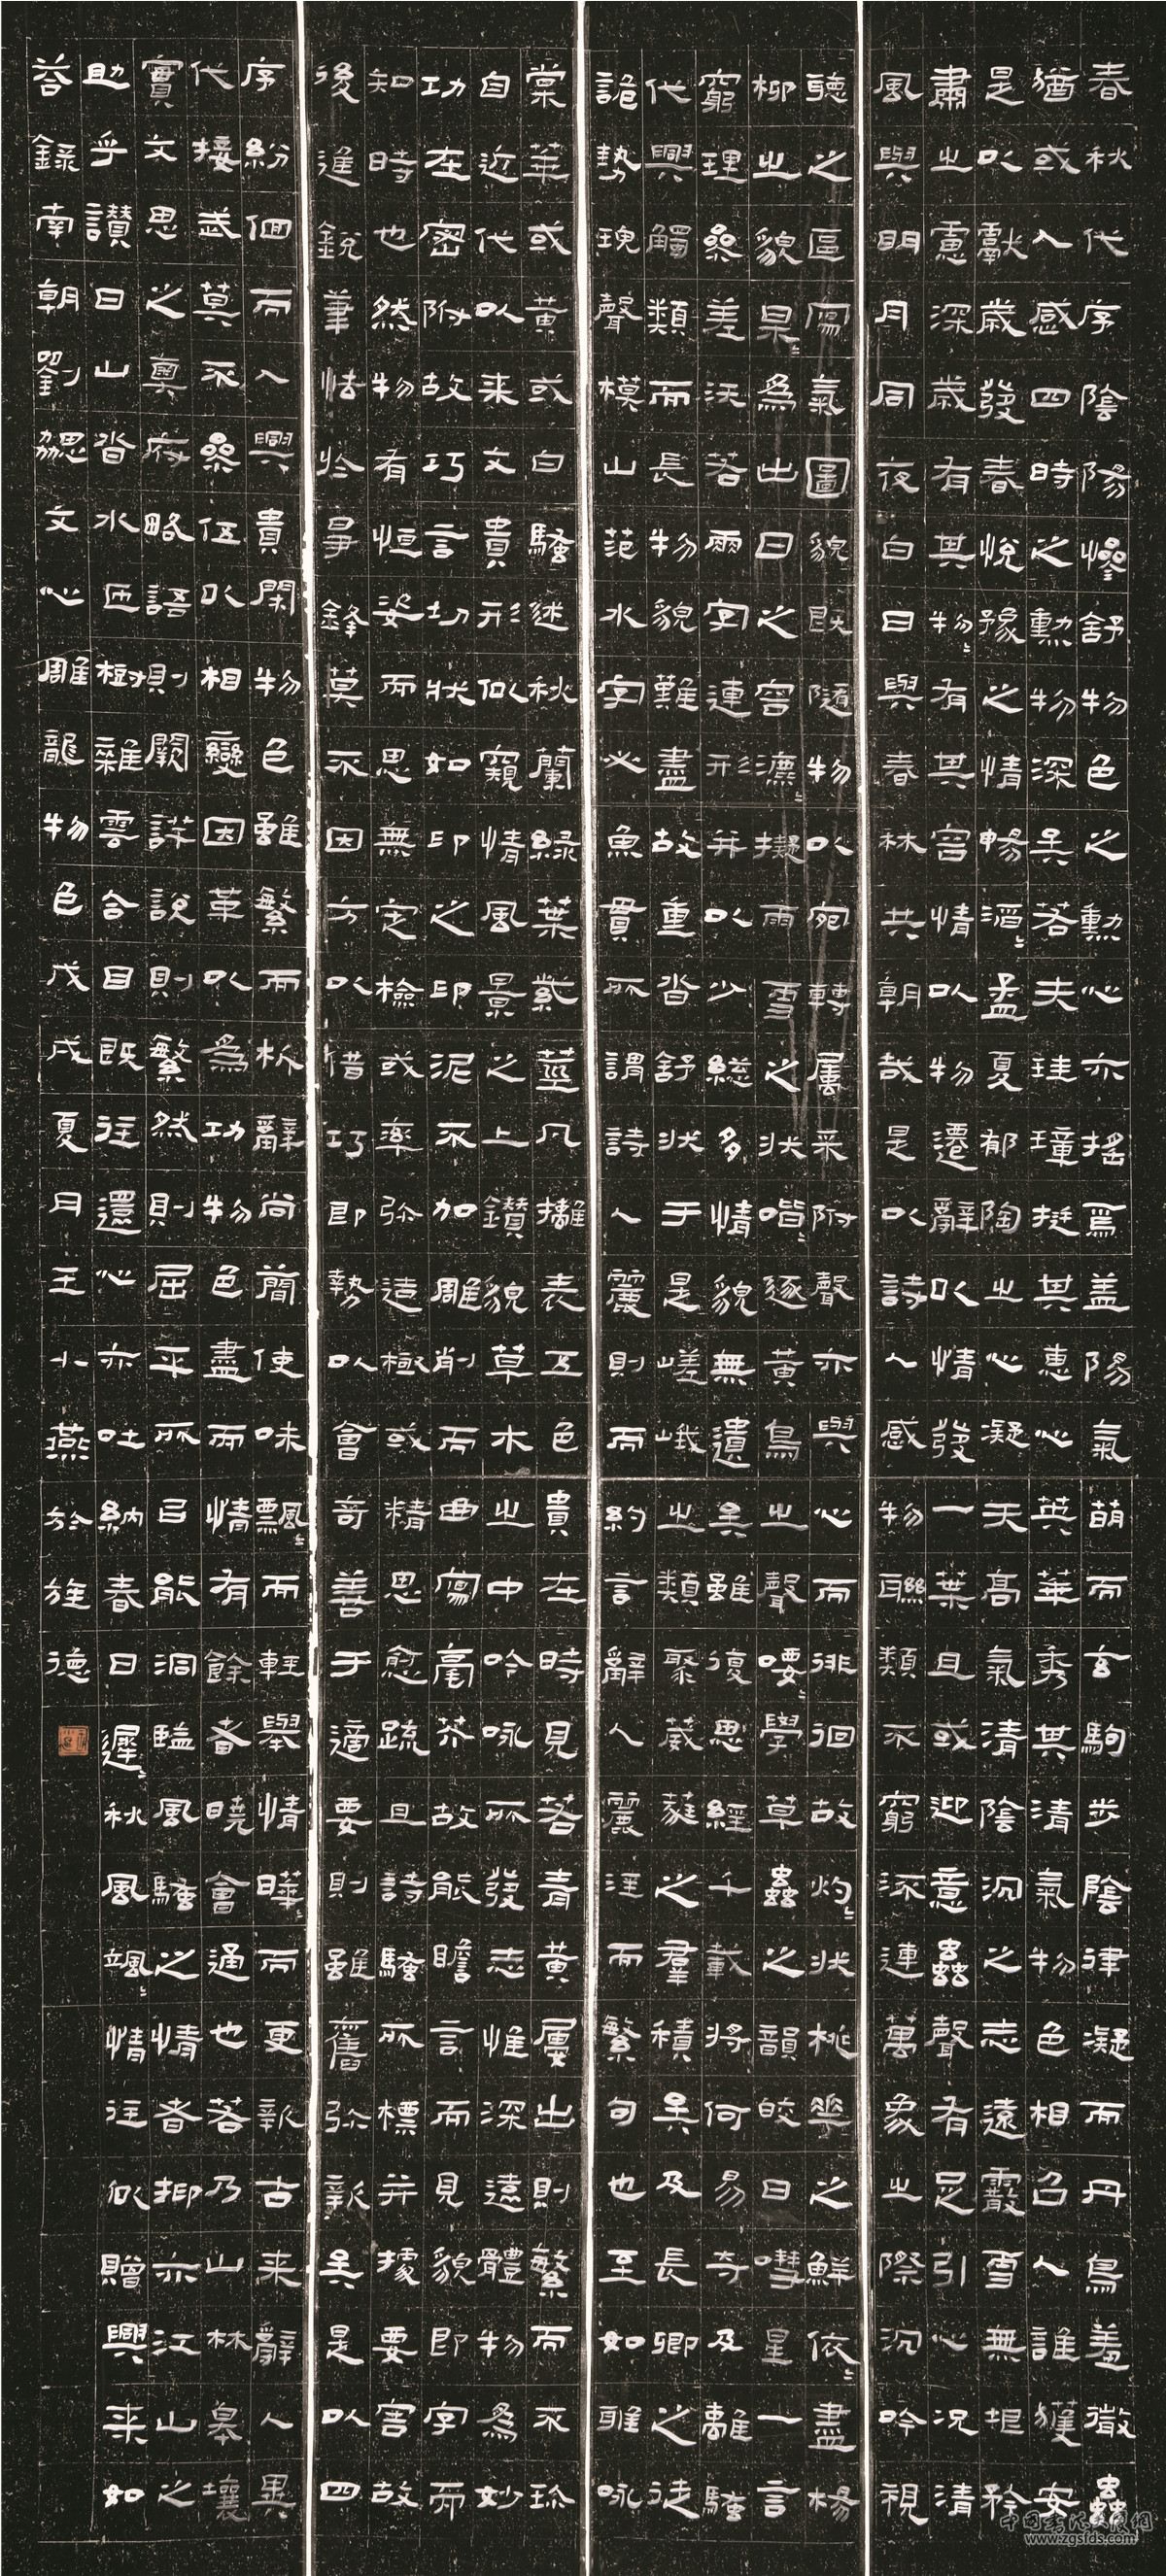 春秋代序陰陽慘舒物色之動心亦搖焉盖陽氣萌而玄駒步陰律凝而丹鳥羞微蟲
猶或入感四時之動物深矣若夫珪璋挺其惠心英華秀其清氣物色相召人誰獲安
是以獻歲發春悅豫之情暢滔〻孟夏郁陶之心凝天高氣清陰沉之志遠霰雪無垠矜
肅之慮深歲有其物〻有其容情以物遷辭以情發一葉且或迎意蟲聲有足引心況清
風與明月同夜白日與春林共朝哉是以詩人感物聯類不窮流連萬象之際沉吟視
聽之區寫氣圖貌既隨物以宛轉屬采附聲亦與心而徘徊故灼〻狀桃華之鮮依〻盡楊
柳之貌杲〻為出日之容瀌〻擬雨雪之狀喈〻逐黃鳥之聲喓〻學草蟲之韻皎日嘒星一言
窮理參差沃若兩字連形并以少總多情貌無遺矣雖復思經千載將何易奪及離騷
代興觸類而長物貌難盡故重沓舒狀于是嵯峨之類聚葳蕤之羣積矣及長卿之徒
詭勢瑰聲模山范水字必魚貫所謂詩人麗則而約言辭人麗淫而繁句也至如雅咏
棠華或黃或白騷述秋蘭綠葉紫莖凡攡表五色貴在時見若青黃屢出則繁而不珍
自近代以来文貴形似窺情風景之上鑽貌草木之中吟咏所發志惟深遠體物為妙
功在密附故巧言切狀如印之印泥不加雕削而曲寫毫芥故能瞻言而見貌即字而
知時也然物有恒姿而思無定檢或率弥造極或精思愈疏且詩騷所標并據要害故
後進銳筆怯於爭鋒莫不因方以借巧即勢以會奇善于適要則雖舊弥新矣是以四
序紛迴而入興貴閑物色雖繁而析辭尚簡使味飄〻而輕舉情曄〻而更新古来辭人異
代接武莫不參伍以相變因革以為功物色盡而情有餘者曉會通也若乃山林皋壤
實文思之奧府略語則闕詳說則繁然則屈平所㠯能洞監風騷之情者抑亦江山之
助乎讃曰山沓水匝樹雜雲合目既往還心亦吐納春日遲〻秋風颯〻情往似贈興来如
荅錄南朝劉勰文心雕龍物色戊戌夏月王小燕於旌德
中国书法大展网
www.zgsfds.com